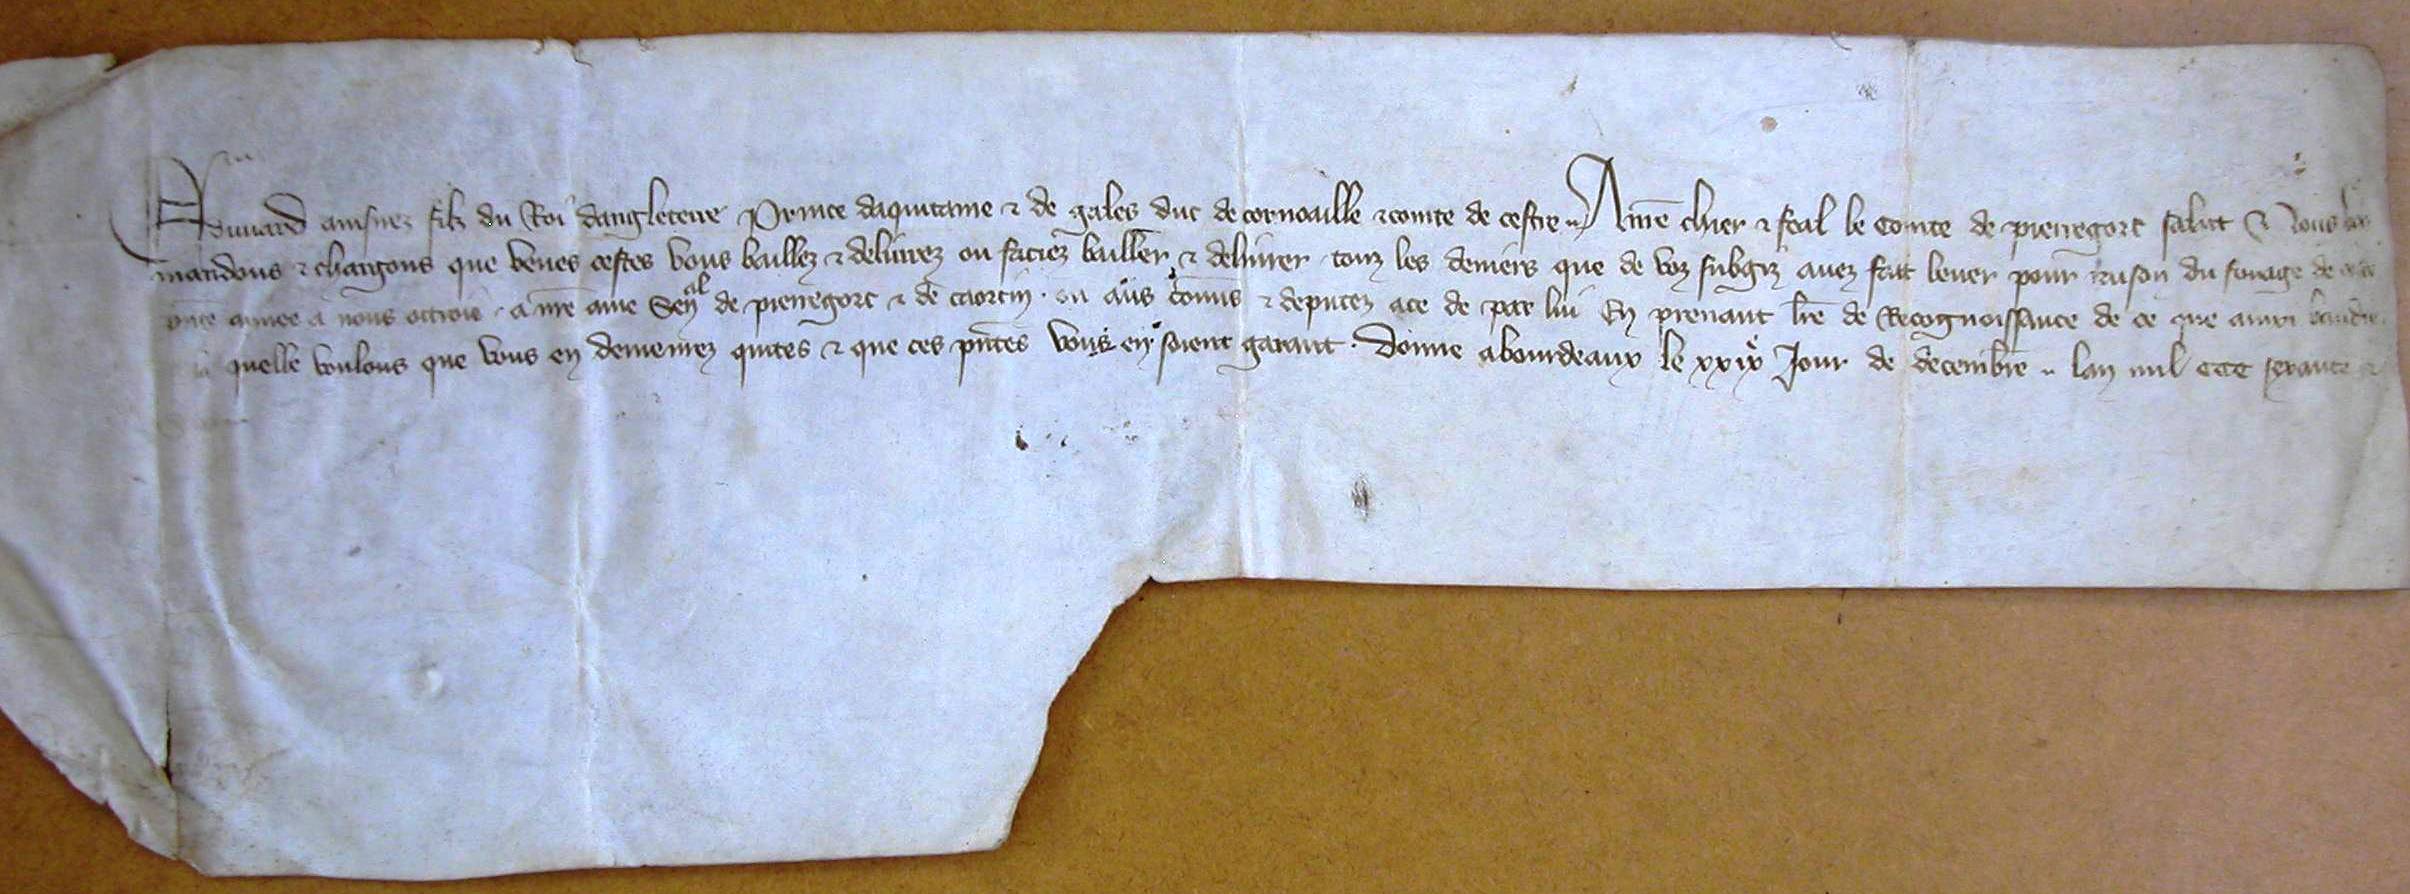 Eduuard ainsnez filz du Roi dangleterre Prince daquitaine & de gales duc de cornoaille & comte de cestre A nre chier & feal le Comte de pierregort salut & Vous
mandons & chargons que veues cestes vous baillez & deliurez ou faciez bailler & deliurer touz les deniers que de voz subgiz auez fait leuer pour raison du fouage de
annee a nous ottroie a nre ame Sen^al de pierregort & de caorcin ou aus comis & deputez a ce de par lui En prenant lre de Recognoissance de ce que
quelle voulons que vous en demeurez quites & que ces pntes vous en soient garant Donne a bourdeaux le xxix Jour de decembre lan mil ccc sexante